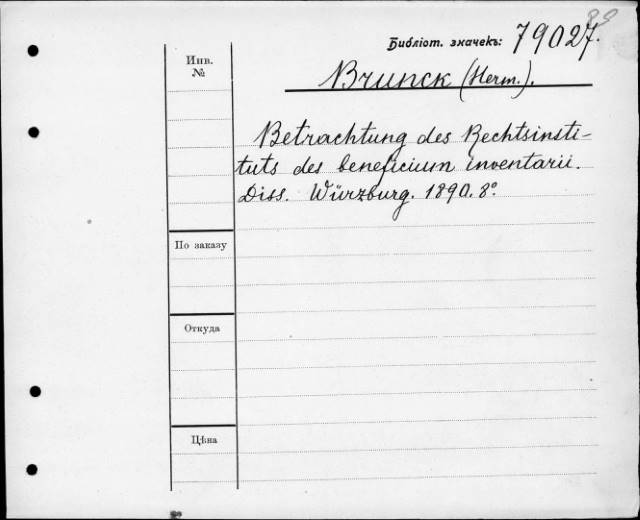 Библіот. значекъ: 79027.
Инв.
№
Brunck (Herm.).
Betrachtung des Rechtsinsti-
tuts des beneficium inventarii.
Diss. Würzburg. 1890. 8º.
По заказу
Откуда
Цѣна